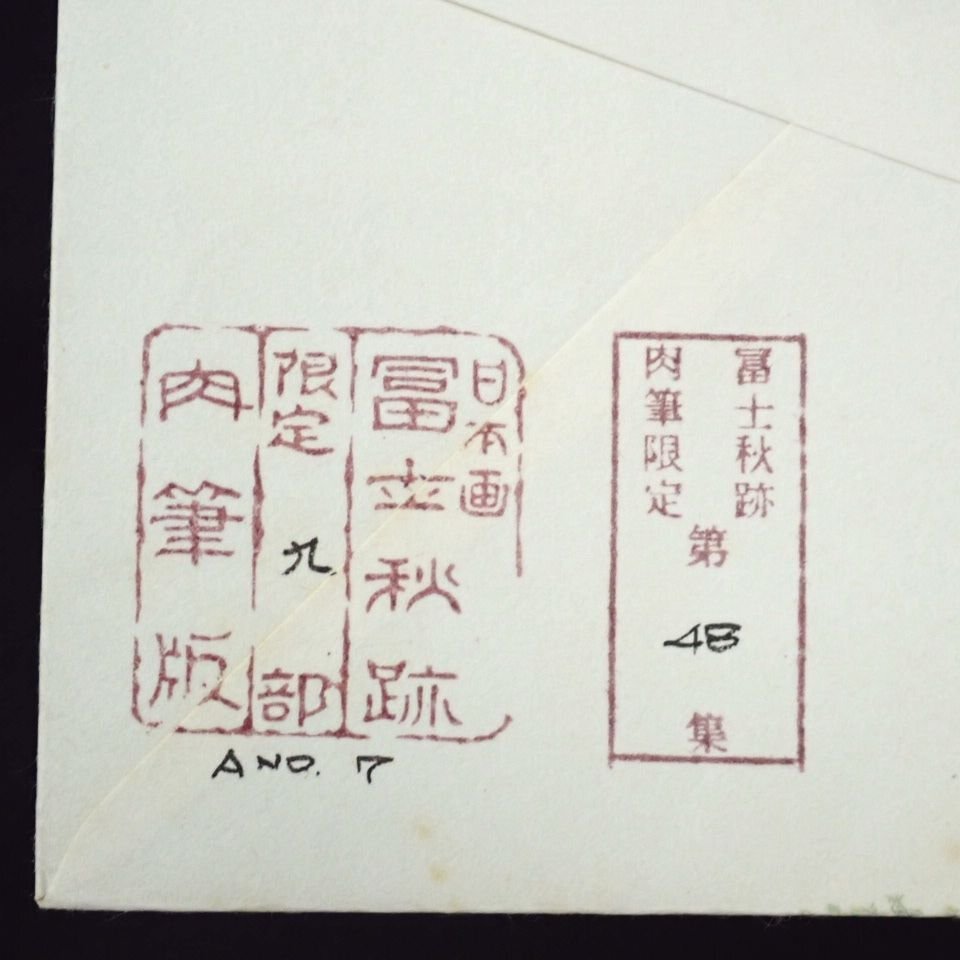 日本画
冨士秋跡
限定 九 部
肉筆版
A NO. 7
冨士秋跡
肉筆限定
第 48 集